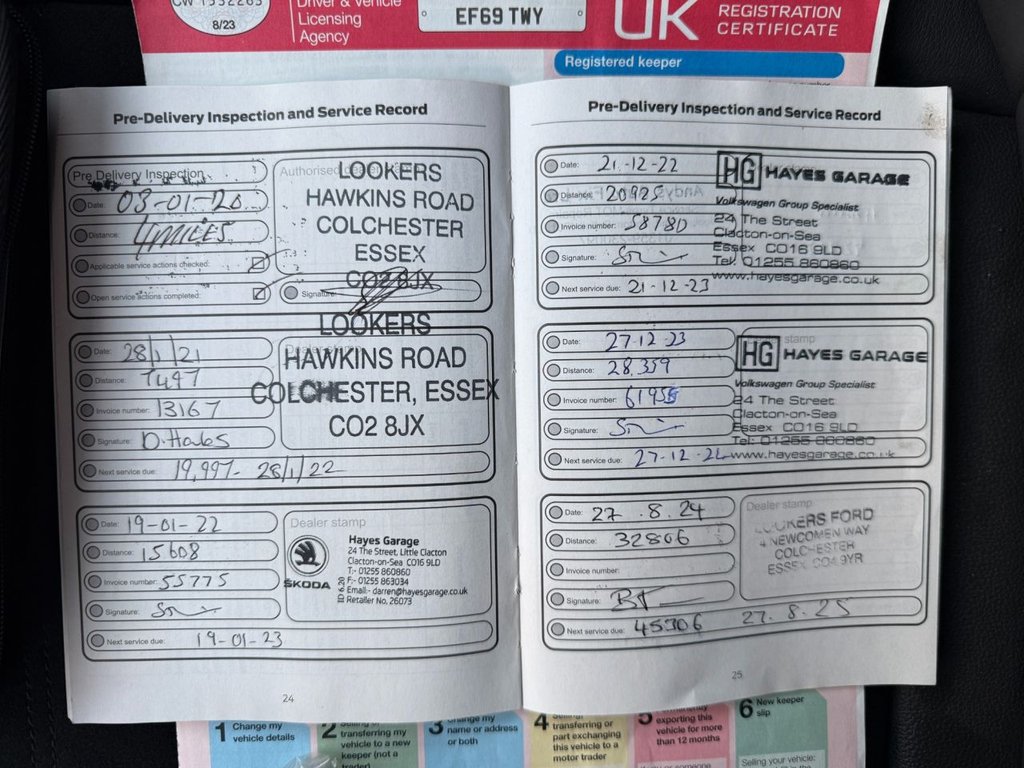 8/23
Driver & Vehicle
Licensing
Agency
EF69 TWY
UK
REGISTRATION
CERTIFICATE
Registered keeper
Pre-Delivery Inspection and Service Record
Pre Delivery Inspection
Date: 03-01-20
Distance: 4 MILES
Applicable service actions checked:
Open service actions completed:
Authorised
Signature:
LOOKERS
HAWKINS ROAD
COLCHESTER
ESSEX
CO2 8JX
Date: 28/1/21
Distance: 7497
Invoice number: 13167
Signature:
Next service due: 19,997- 28/1/22
LOOKERS
HAWKINS ROAD
COLCHESTER, ESSEX
CO2 8JX
Date: 19-01-22
Distance: 15608
Invoice number: 55775
Signature:
Next service due: 19-01-23
Dealer stamp
ŠKODA
Hayes Garage
24 The Street, Little Clacton
Clacton-on-Sea CO16 9LD
T:- 01255 860860
F:- 01255 863034
Email:- darren@hayesgarage.co.uk
Retailer No. 26073
24
Pre-Delivery Inspection and Service Record
Date: 21-12-22
Distance: 20925
Invoice number: 58780
Signature:
Next service due: 21-12-23
HG HAYES GARAGE
Volkswagen Group Specialist
24 The Street
Clacton-on-Sea
Essex CO16 9LD
Tel: 01255 860860
www.hayesgarage.co.uk
Date: 27-12-23
Distance: 28,359
Invoice number:
Signature:
Next service due: 27-12-24
stamp
HG HAYES GARAGE
Volkswagen Group Specialist
24 The Street
Clacton-on-Sea
Essex CO16 9LD
Tel: 01255 860860
www.hayesgarage.co.uk
Date: 27.8.24
Distance: 32806
Invoice number:
Signature:
Next service due: 45306 27.8.25
Dealer stamp
LOOKERS FORD
4 NEWCOMEN WAY
COLCHESTER
ESSEX CO4 9YR
25
1 Change my
vehicle details
2
transferring my
vehicle to a new
keeper (not a
trader)
3 Change my
name or address
or both
4 Selling,
transferring or
part exchanging
this vehicle to a
motor trader
5 Permanently
exporting this
vehicle for more
than 12 months
6 New keeper
slip
Selling your vehicle: